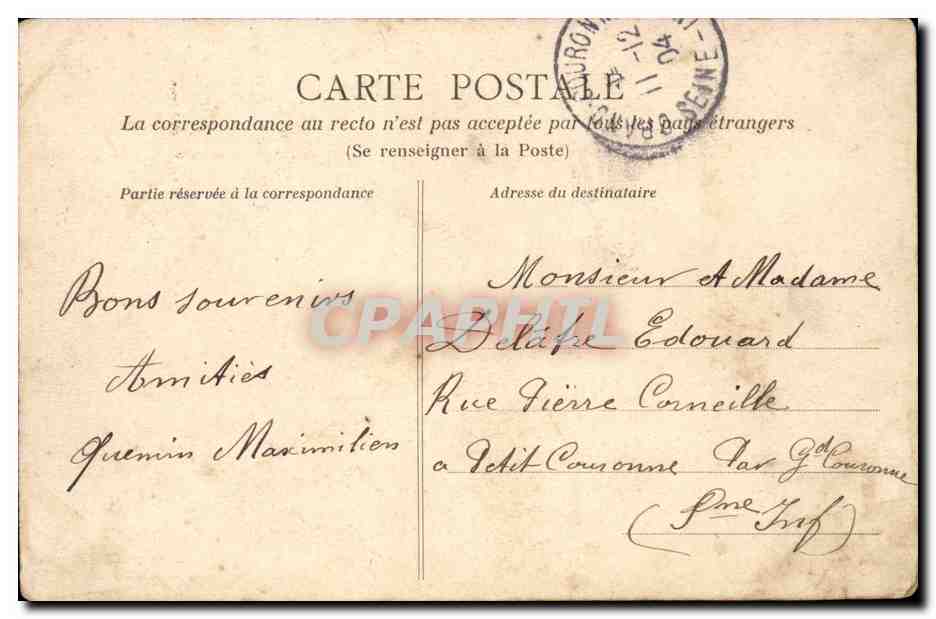 CARTE POSTALE
La correspondance au recto n'est pas acceptée par tous les pays étrangers
(Se renseigner à la Poste)
Partie réservée à la correspondance
Adresse du destinataire
Bons souvenirs
Amitiés
Quemin Maximilien
Monsieur et Madame
Delafre Edouard
Rue Pierre Corneille
a Petit Couronne Par Gd Couronne
(Sne Inf)
11 -12
04
SEINE
CPAPHIL